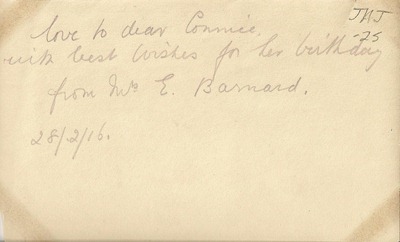 JHJ
-25
love to dear Connie,
with best wishes for her birthday
from Mrs E. Barnard.
28/2/16.